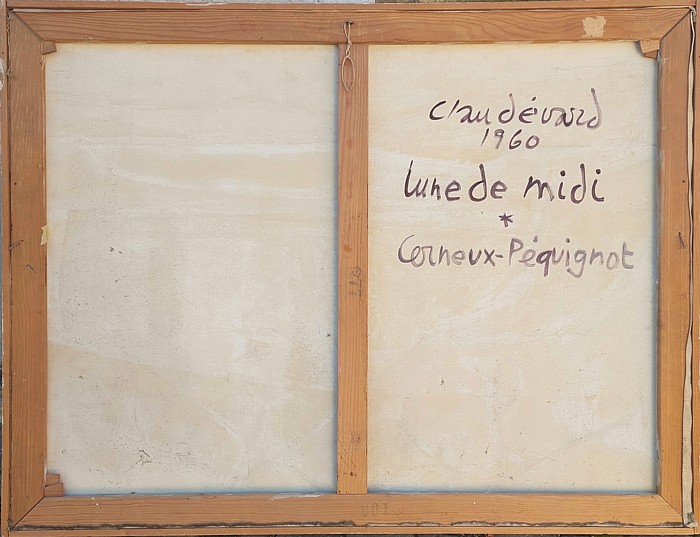 Claudévard
1960
lune de midi
*
Cerneux-Péquignot